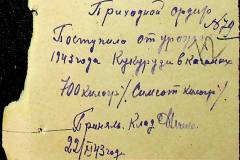 Приходной ордер
№ 70
Поступило от урожая
1943 года Кукурузы в качанах
700 килогр./. Семсот килогр./.
Принял. Клад
22/XI 43 года